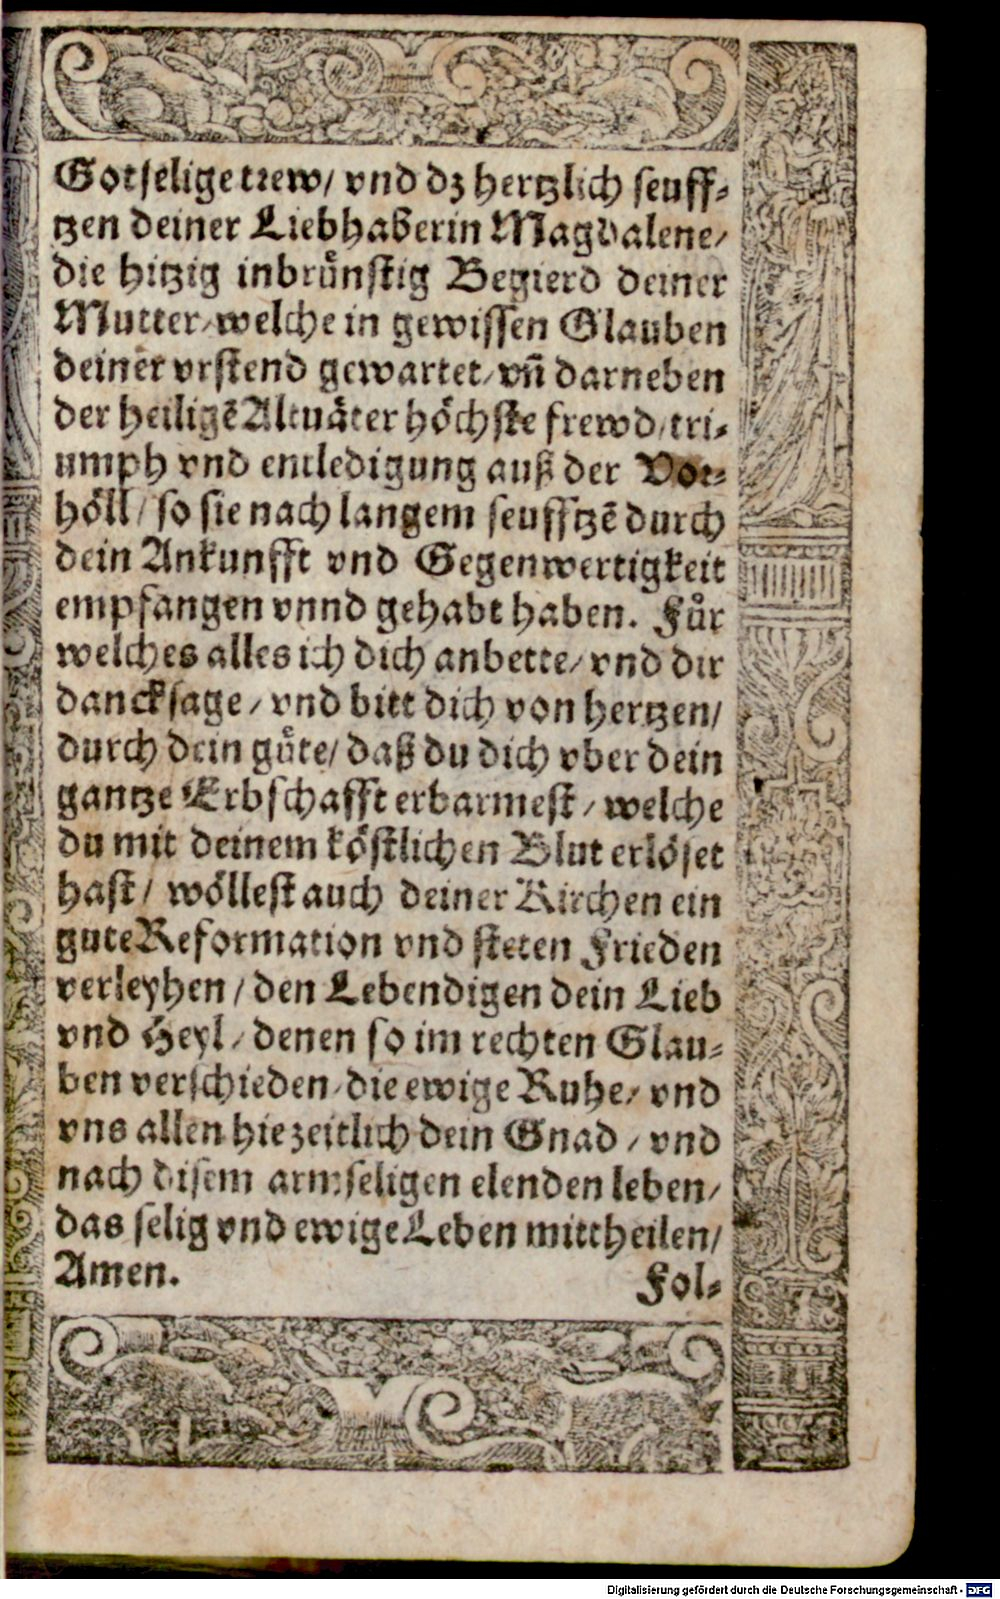 Gotselige trew/ vnd dz hertzlich seuff⸗
tzen deiner Liebhaberin Magdalene/
die hitzig inbrůnstig Begierd deiner
Mutter/ welche in gewissen Glauben
deiner vrstend gewartet/ vñ darneben
der heiligẽ Altuäter höchste frewd/ tri⸗
umph vnd entledigung auß der Vor⸗
höll/ so sie nach langem seufftzẽ durch
dein Ankunfft vnd Gegenwertigkeit
empfangen vnnd gehabt haben. Fůr
welches alles ich dich anbette/ vnd dir
dancksage/ vnd bitt dich von hertzen/
durch dein gůte/ daß du dich vber dein
gantze Erbschafft erbarmest/ welche
du mit deinem köstlichen Blut erlöset
hast/ wöllest auch deiner Kirchen ein
gute Reformation vnd steten Frieden
verleyhen/ den Lebendigen dein Lieb
vnd Heyl/ denen so im rechten Glau⸗
ben verschieden/ die ewige Ruhe/ vnd
vns allen hie zeitlich dein Gnad/ vnd
nach disem armseligen elenden leben/
das selig vnd ewige Leben mittheilen/
Amen. Fol⸗
Digitalisierung gefördert durch die Deutsche Forschungsgemeinschaft - DFG